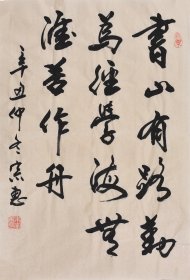 書山有路勤
為徑學海無
涯苦作舟
辛丑仲冬